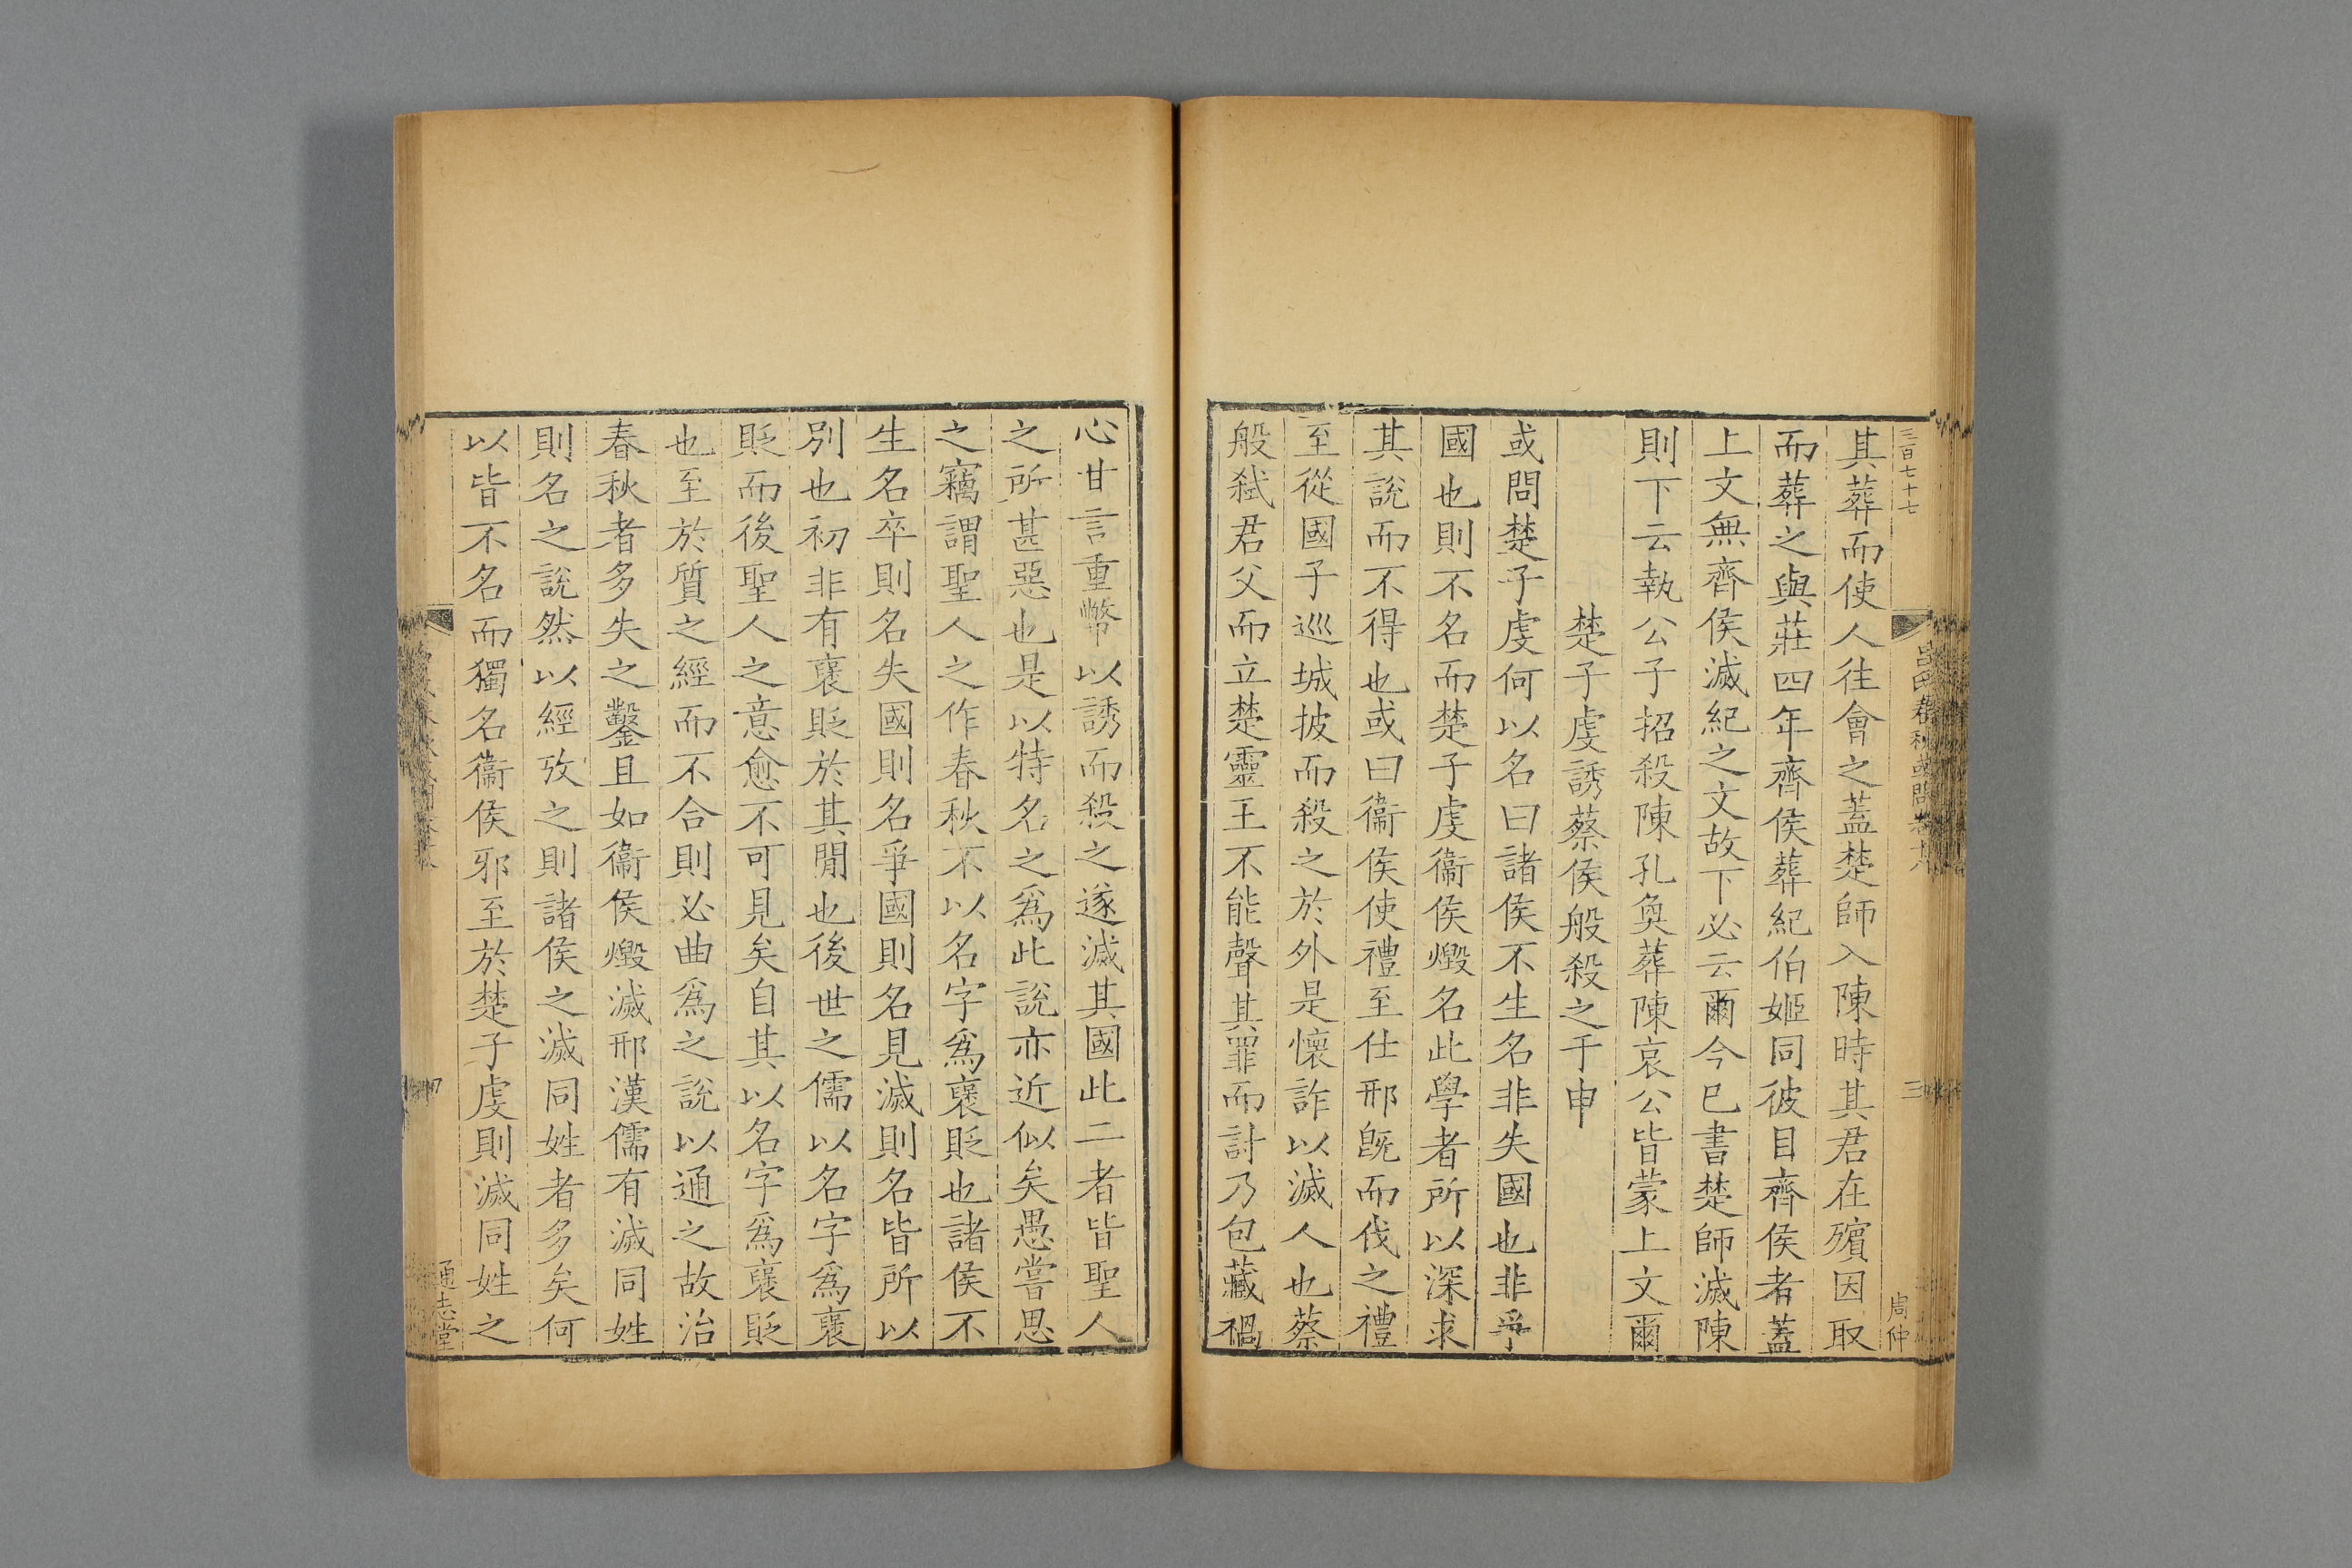 三百七十七
呂氏春秋或問卷十八
三
周仲
其葬而使人往會之蓋楚師入陳時其君在殯因取
而葬之與莊四年齊侯葬紀伯姬同彼目齊侯者蓋
上文無齊侯滅紀之文故下必云爾今已書楚師滅陳
則下云執公子招殺陳孔奐葬陳哀公皆蒙上文爾
楚子虔誘蔡侯般殺之于申
或問楚子虔何以名曰諸侯不生名非失國也非爭
國也則不名而楚子虔衞侯燬名此學者所以深求
其說而不得也或曰衞侯使禮至仕邢旣而伐之禮
至從國子巡城掖而殺之於外是懷詐以滅人也蔡
般弑君父而立楚靈王不能聲其罪而討乃包藏禍
心甘言重幣以誘而殺之遂滅其國此二者皆聖人
之所甚惡也是以特名之爲此說亦近似矣愚嘗思
之竊謂聖人之作春秋不以名字爲襃貶也諸侯不
生名卒則名失國則名爭國則名見滅則名皆所以
別也初非有襃貶於其閒也後世之儒以名字爲襃
貶而後聖人之意愈不可見矣自其以名字爲襃貶
也至於質之經而不合則必曲爲之說以通之故治
春秋者多失之鑿且如衞侯燬滅邢漢儒有滅同姓
則名之說然以經攷之則諸侯之滅同姓者多矣何
以皆不名而獨名衞侯邪至於楚子虔則滅同姓之
通志堂